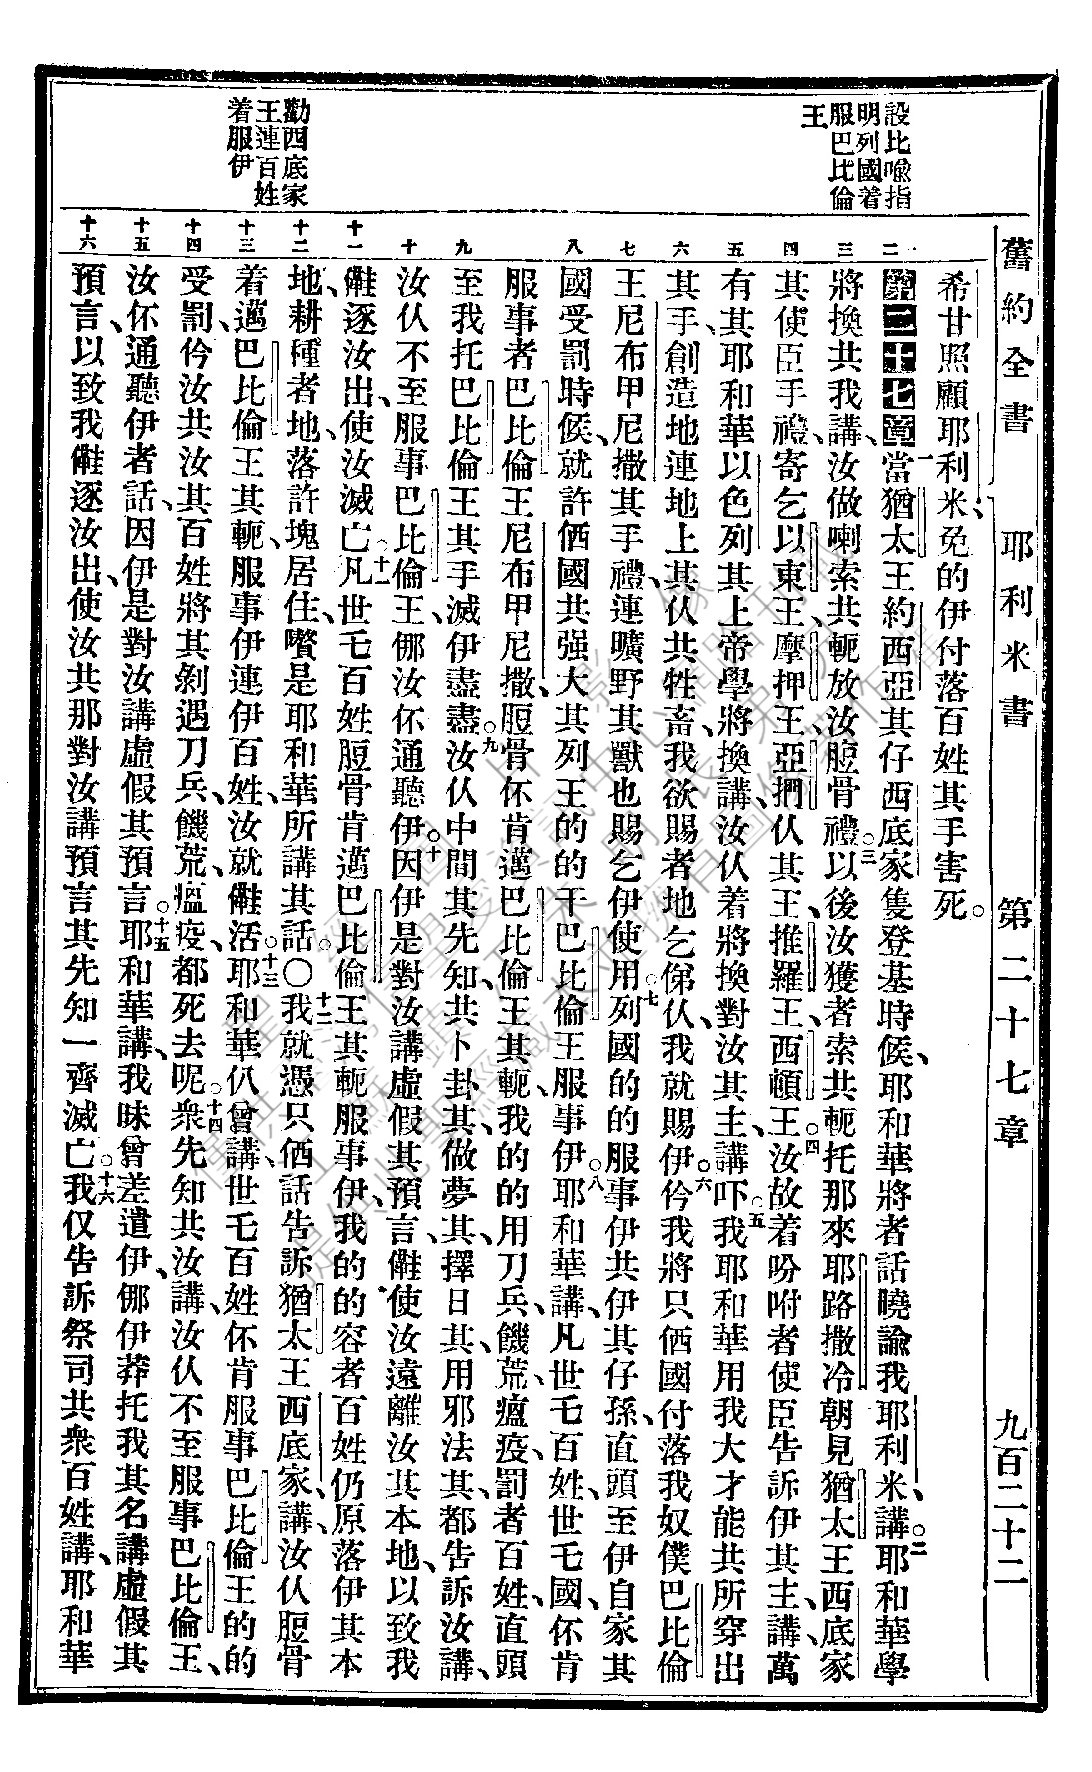 舊約全書 耶利米書 第二十七章 九百二十二
設比喻指
明列國着
服巴比倫
王
勸西底家
王連百姓
着服伊
希甘照顧耶利米免的伊付落百姓其手害死。
第二十七章 一當猶太王約西亞其仔西底家隻登基時候、耶和華將者話曉諭我耶利米講。二耶和華學
將換共我講、汝做喇索共軛放汝脰骨禮。三以後汝獲者索共軛托那來耶路撒冷朝見猶太王西底家
其使臣手禮、寄乞以東王摩押王、亞捫仈其王、推羅王、西頓王。四汝故着吩咐者使臣告訴伊其主、講、萬
有其耶和華以色列其上帝學將換講、汝仈着將換對汝其主、講。五吓我耶和華用我大才能共所穿出
其手、創造地連地上其仈共牲畜、我欲賜者地乞俤仈、我就賜伊。六伶我將只個國付落我奴僕巴比倫
王尼布甲尼撒其手禮、連曠野其獸也賜乞伊使用。七列國的的服事伊共伊其仔孫、直頭至伊自家其
國受罰時候、就許個國共强大其列王的的干巴比倫王服事伊。八耶和華講、凡世乇百姓、世乇國、伓肯
服事者巴比倫王尼布甲尼撒、脰骨伓肯邁巴比倫王其軛、我的的用刀兵、饑荒、瘟疫、罰者百姓、直頭
至我托巴比倫王其手滅伊盡盡。九汝仈中間其先知、共卜卦其、做夢其、擇日其、用邪法其、都告訴汝講、
汝仈不至服事巴比倫王、倻汝伓通聽伊。十因伊是對汝講虛假其預言、㒑使汝遠離汝其本地、以致我
㒑逐汝出、使汝滅亡。十一凡世乇百姓脰骨肯邁巴比倫王其軛服事伊、我的的容者百姓仍原落伊其本
地、耕種者地、落許塊居住、嚽是耶和華所講其話。〇十二我就憑只個話告訴猶太王西底家、講、汝仈脰骨
着邁巴比倫王其軛、服事伊連伊百姓、汝就㒑活。十三耶和華仈曾講、世乇百姓伓肯服事巴比倫王的的
受罰、伶汝共汝其百姓將其剝遇刀兵、饑荒、瘟疫、都死去呢。十四衆先知共汝講、汝仈不至服事巴比倫王、
汝伓通聽伊者話、因伊是對汝講虛假其預言。十五耶和華講、我昧曾差遣伊、倻伊莽托我其名講虛假其
預言、以致我㒑逐汝出、使汝共那對汝講預言其先知一齊滅亡。十六我仅告訴祭司共衆百姓講、耶和華